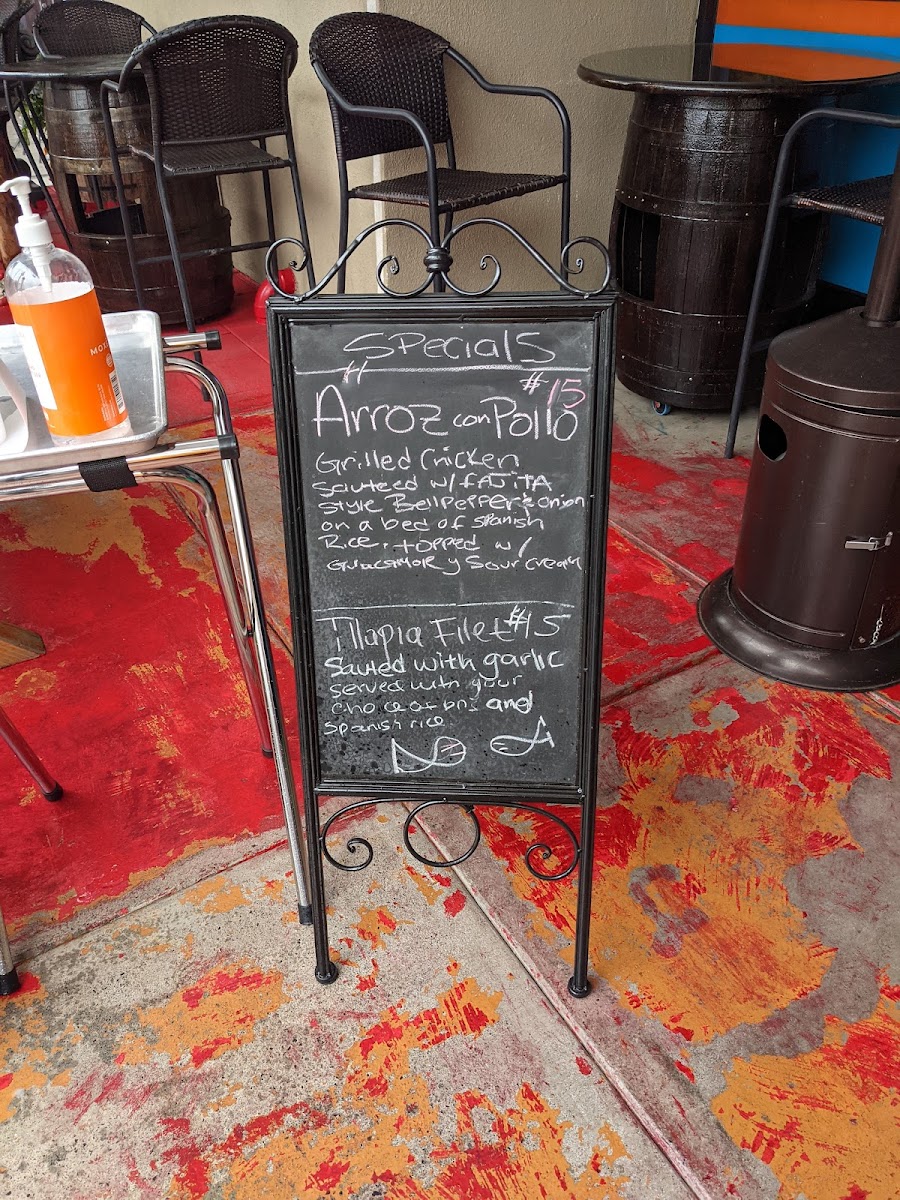 SPecialS
#15
Arroz con Pollo
Grilled Chicken
Sauteed w/ FAJITA
Style BellPepper & onion
on a bed of Spanish
Rice. topped w/
Guacamole y Sour cream
Tilapia Filet #15
Sauted with garlic
served with your
choice of bns and
spanish rice
MOX